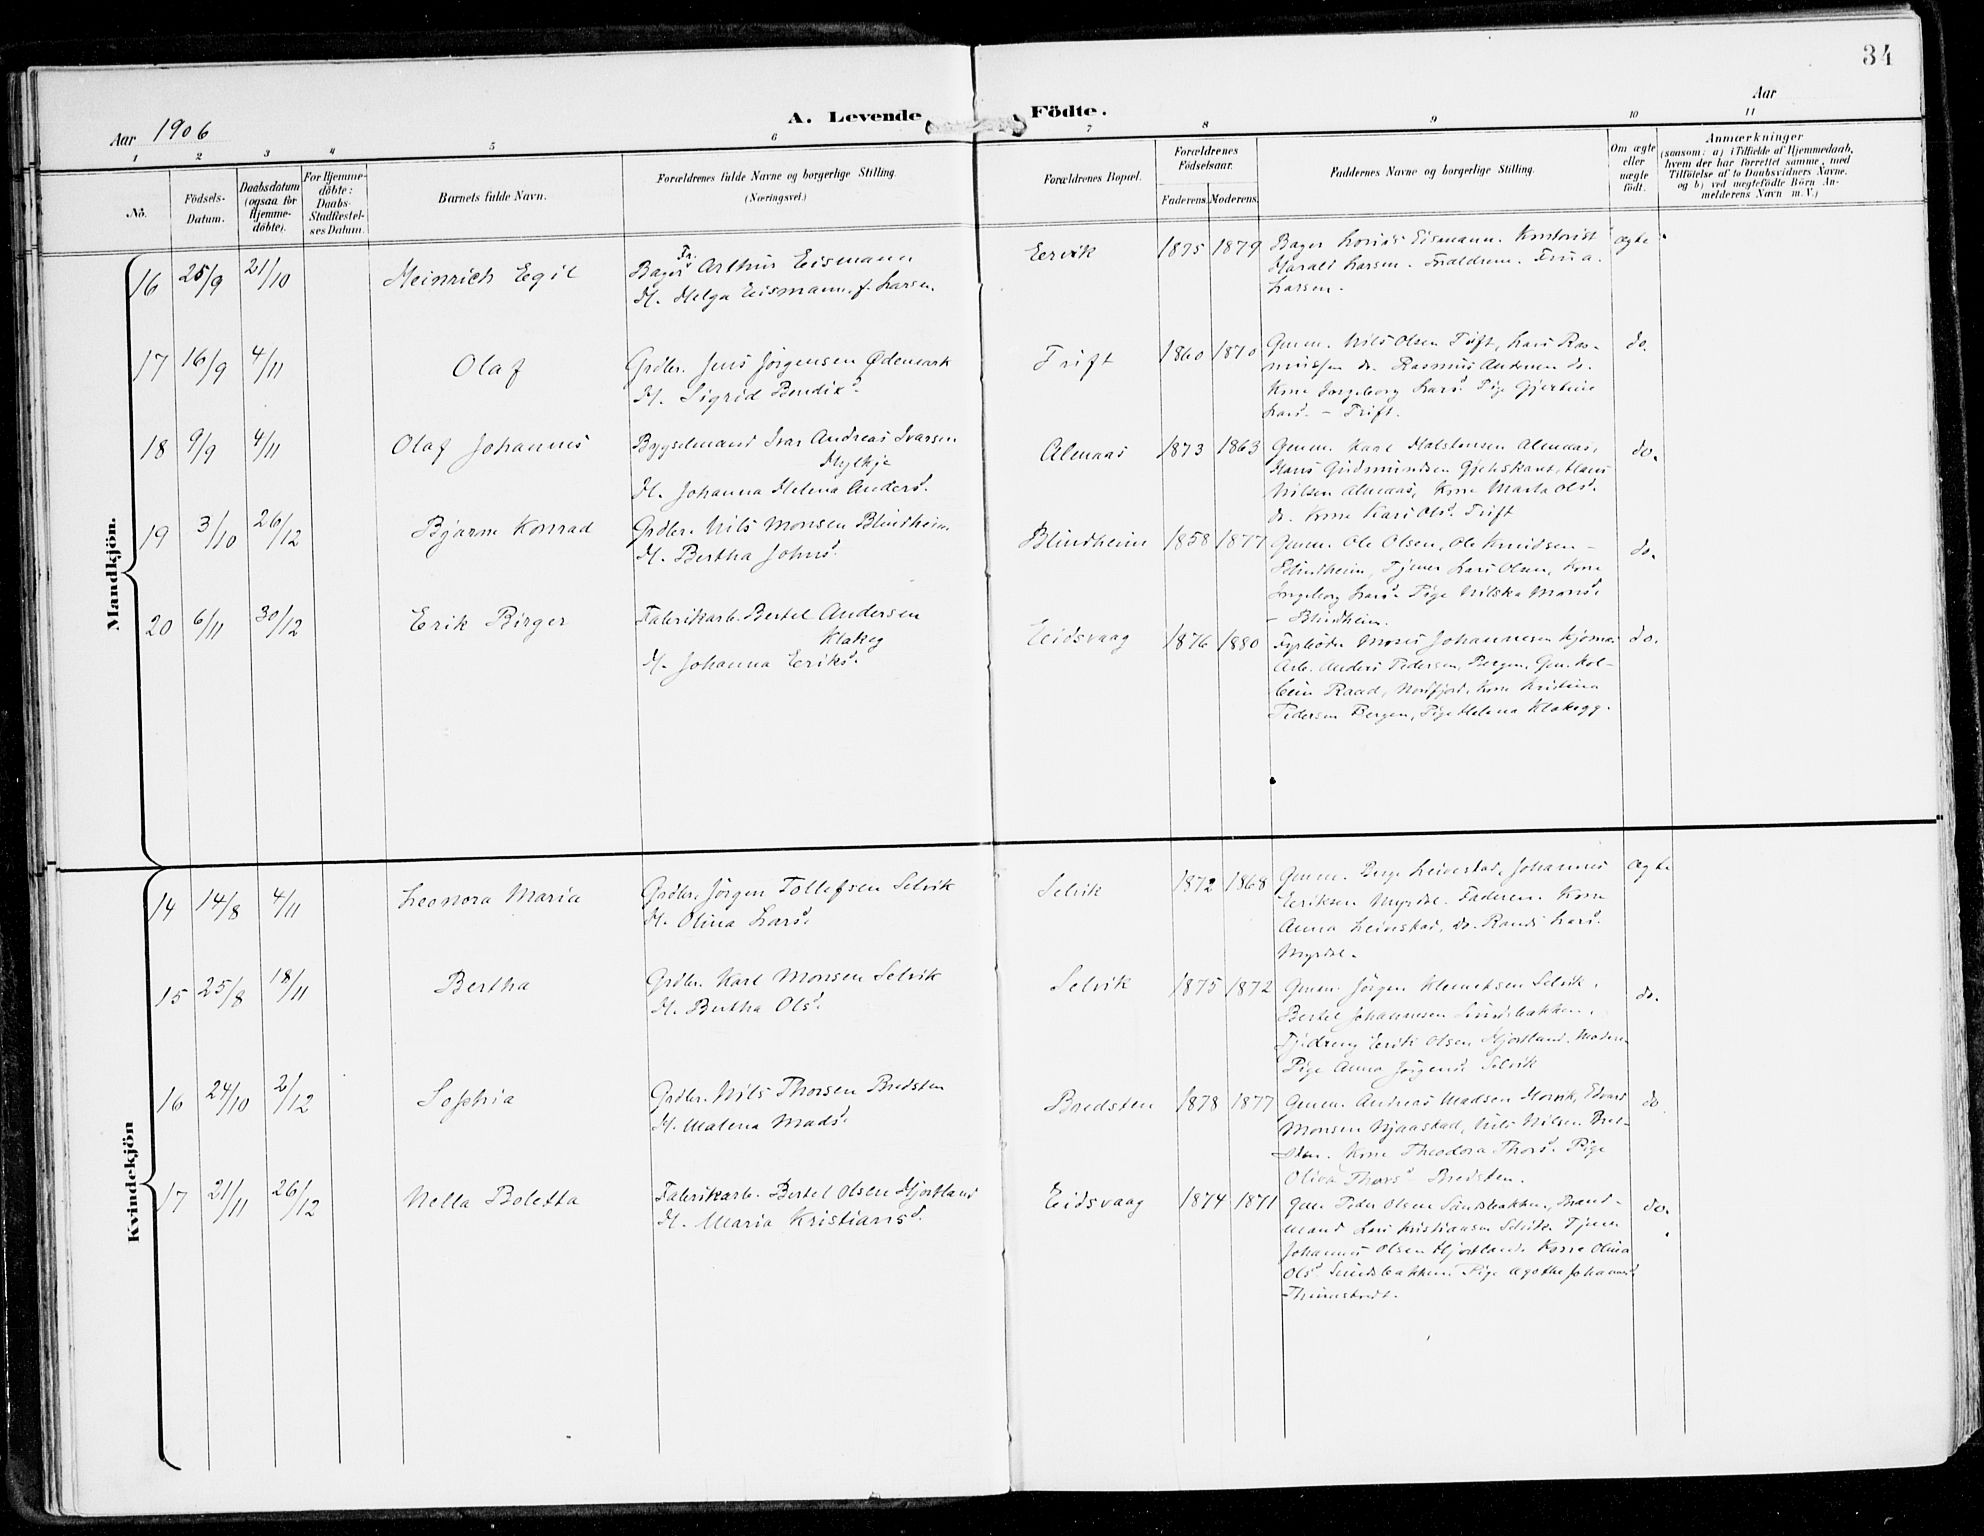 34
Aar 1906
A. Levende Födte.
Aar
1 2 3 4 5 6 7 8 9 10 11
No.
Födsels-Datum.
Daabsdatum (ogsaa for Hjemme-döbte).
For Hjemme-döbte: Daabs-Stadfæstel-ses Datum.
Barnets fulde Navn.
Forældrenes fulde Navne og borgerlige Stilling.
(Næringsvei.)
Forældrenes Bopæl.
Forældrenes Födselsaar.
Faderens. Moderens.
Faddernes Navne og borgerlige Stilling.
Om ægte eller uægte födt.
Anmærkninger
(saasom: a) i Tilfælde af Hjemmedaab,
hvem der har forrettet samme, med
Tilföielse af to Daabsvidners Navne,
og b) ved uægtefödte Börn An-
melderens Navn m. V.)
Mandkjön.
16 25/9 21/10 Heinrich Egil
Bager Fr. Arthur Eismann
H. Helga Eismann f. Larsen.
Eervik 1875 1879
Bager Eismann. Kontorist
Harald Larsen. Forældrene. Fru A.
Larsen.
ægte
17 16/9 4/11 Olaf
Grdbr. Jens Jörgensen Ødemark
H. Sigrid Bendixd.
Trift 1860 1870
Gmm. Nils Olsen Trift, Lars Ras-
mussen do. Rasmus Andersen do.
Kone Ingeborg Larsd. Pige Gjertine
Larsd. - Trift.
do.
18 9/9 4/11 Olaf Johannes
Bygselmand Ivar Andreas Ivarsen
Mylkje
H. Johanna Helena Andersd.
Almaas 1873 1863
Gmm. Karl Halstensen Almaas,
Hans Gudmundsen Hans
Nilsen Almaas, Kone Marta Olsd.
do. Kone Kari Olsd. Trift
do.
19 3/10 26/12 Bjarne Konrad
Grdbr. Nils Monsen Blindheim
H. Bertha Johnsd.
Blindheim 1858 1877
Gmm. Ole Olsen, Ole Knudsen -
Blindheim, Tjener Lars Olsen, Kone
Ingeborg Larsd. Pige Nilska Monsd.
- Blindheim.
do.
20 6/11 30/12 Erik Birger
Fabrikarb. Bertel Andersen
Klakeg
H. Johanna Eriksd.
Eidsvaag 1876 1880
Fyrböder Moses Johannesen
Arb. Anders Pedersen, Bergen, Gm. Kol-
bein Raad, Nordfjord, Kone Kristina
Pedersen Bergen, Pige Helena Klakegg.
do.
Kvindekjön
14 14/8 4/11 Leonora Maria
Grdbr. Jörgen Tollefsen Selvik
H. Olina Larsd.
Selvik 1872 1868
Gmm. Johannes
Eriksen Myrdal. Faderen. Kone
Anna do. Randi Larsd.
Myrdal.
ægte
15 25/8 18/11 Bertha
Grdbr. Karl Monsen Selvik
H. Bertha Olsd.
Selvik 1875 1872
Gmm. Jörgen Klemetsen Selvik,
Bertel Johannesen
Tjdreng Erik Olsen Hjortland. Moderen
Pige Anna Jörgensd. Selvik
do.
16 24/10 2/12 Sophia
Grdbr. Nils Thorsen Bredsten
H. Malena Madsd.
Bredsten 1878 1877
Gmm. Andreas Madsen Edvard
Monsen Njaastad, Nils Nilsen Bred-
sten. Kone Theodora Thorsd. Pige
Oliva Thorsd. Bredsten.
do.
17 21/11 26/12 Nella Boletta
Fabrikarb. Bertel Olsen Hjortland
H. Maria Kristiansd.
Eidsvaag 1874 1871
Gm. Peder Olsen
mand Lars Kristiansen Selvik. Tjener
Johannes Olsen Hjortland. Kone Olina
Olsd. Pige Agothe Johannesd.
do.